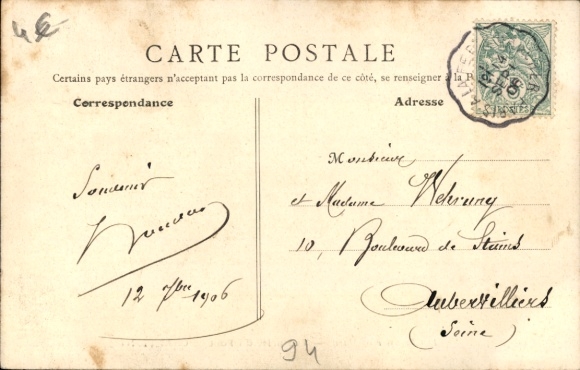 4€
CARTE POSTALE
Certains pays étrangers n'acceptant pas la correspondance de ce côté, se renseigner à la
Correspondance
Adresse
Souvenir
12 7bre 1906
Monsieur
et Madame Wehrung
10, Boulevard de Stains
Aubervilliers
(Seine)
94